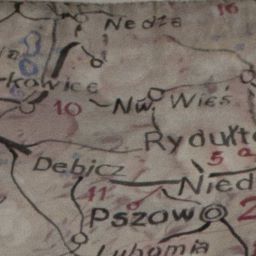 Nedza
16
kowice
10
Nw. Wieś
Rydułt
Dębicz
5
11
Nied
Pszow
2
Lubomia